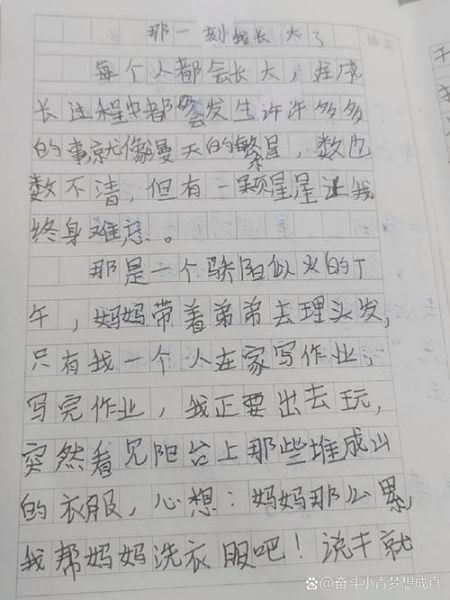 那一刻我长大了
每个人都会长大，在成
长过程中都会发生许许多多
的事就像漫天的繁星，数也
数不清，但有一颗星星让我
终身难忘。
那是一个骄阳似火的下
午，妈妈带着弟弟去理头发，
只有我一个人在家写作业，
写完作业，我正要出去玩，
突然看见阳台上那些堆成山
的衣服，心想：妈妈那么累，
我帮妈妈洗衣服吧！说干就
@奋斗小青梦想成真